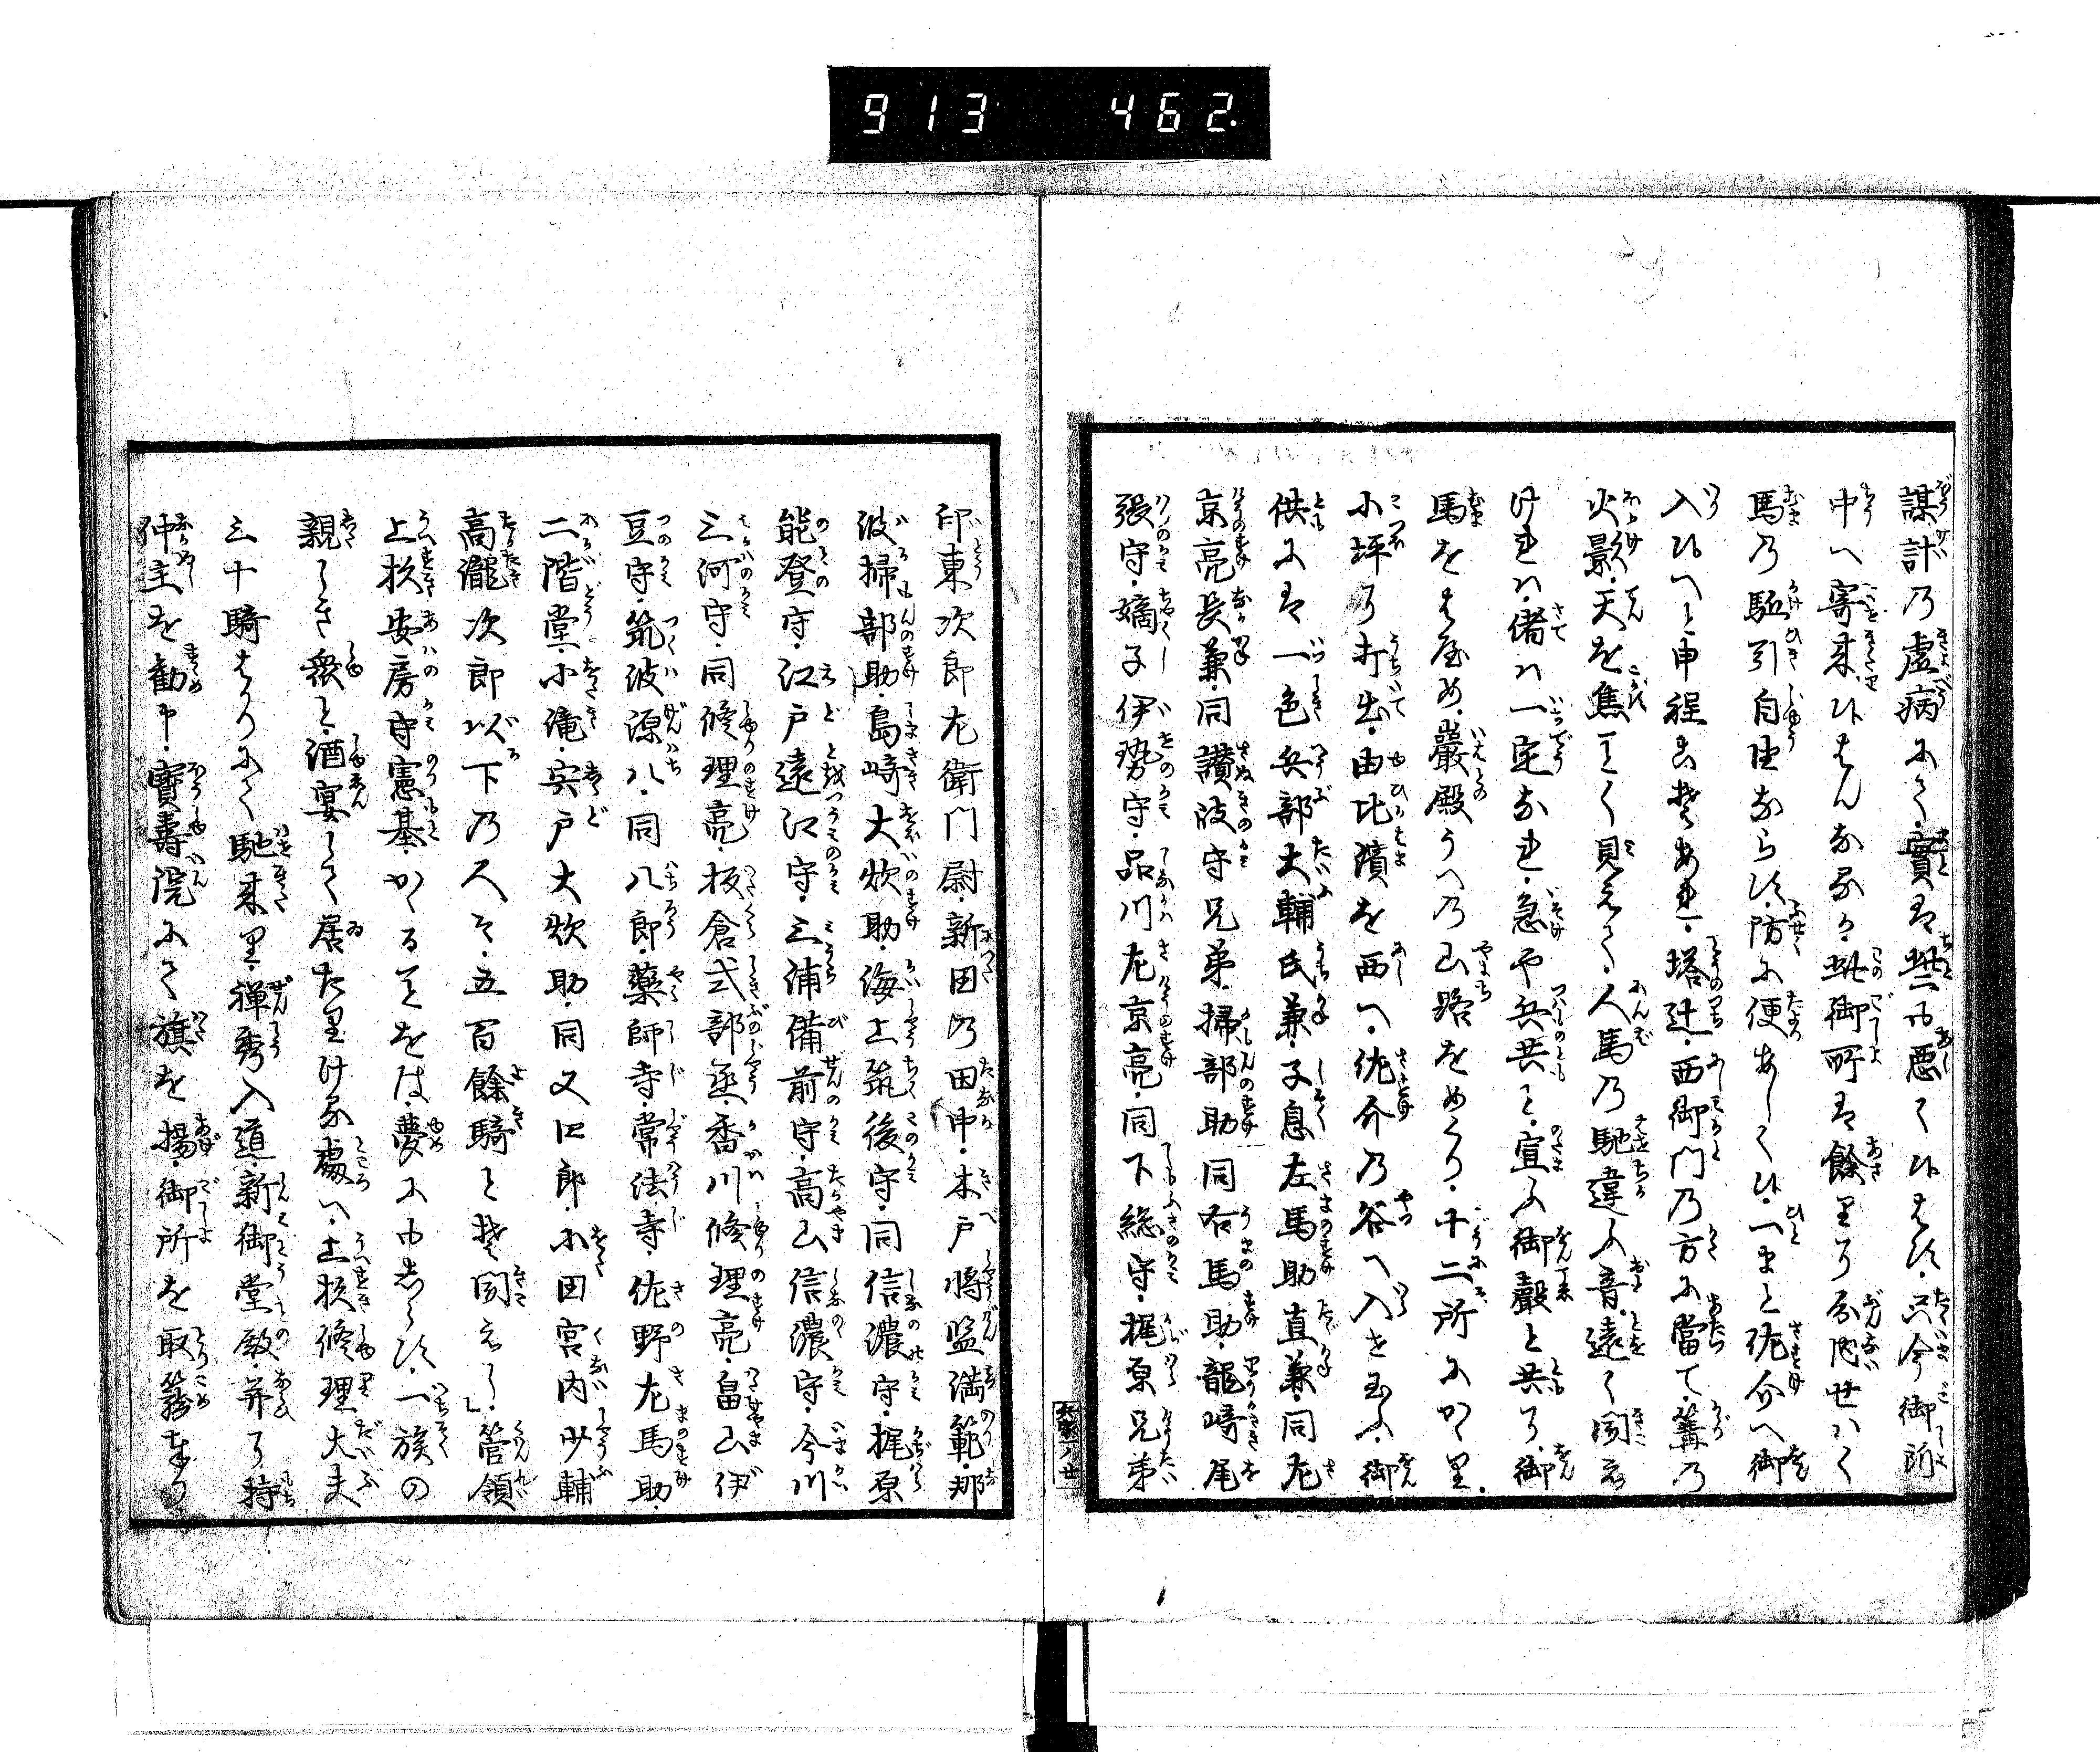 913 462.
謀計乃虚病にて・實は些も悪くひはず・只今御所
中へ寄来ひはんなるか・此御所は餘りに分内せばく
馬乃駈引自由ならず・防に便あしくひ・一まと佐介へ御
入ひへと申程こそあれ・塔辻・西御門乃方に當て・篝乃
火影・天を焦して見えて・人馬乃馳違ふ音・遠く聞え
ければ・偖は一定なれ・急や兵共と・宣ふ御聲と共に・御
馬をはやめ・巖殿うへ乃山路をめぐり・十二所にかゝり・
小坪に打出・由比濱を西へ・佐介乃谷へ入せ玉ふ・御
供には一色兵部大輔氏兼・子息左馬助直兼・同左
京亮長兼・同讃岐守兄弟・掃部助・同右馬助・龍崎尾
張守・嫡子伊勢守・品川左京亮・同下総守・梶原兄弟
印東次郎左衛門尉・新田乃田中・木戸将監満範・那
波掃部助・島崎大炊助・海上筑後守・同信濃守・梶原
能登守・江戸遠江守・三浦備前守・高山信濃守・今川
三河守・同修理亮・板倉式部丞・香川修理亮・畠山伊
豆守・筑波源八・同八郎・薬師寺・常法寺・佐野左馬助・
二階堂・小滝・宍戸大炊助・同又四郎・小田宮内少輔
高瀧次郎以下乃人々・五百餘騎とぞ聞えし・管領
上杦安房守憲基・かゝる事をば・夢にもしらず・一族の
親しき衆と・酒宴して居たりける處へ・上杦修理大夫
三十騎ばかりにて馳来り・禅秀入道・新御堂殿・并に持
仲主を勸申・寳壽院にて旗を揚・御所を取籠奉り